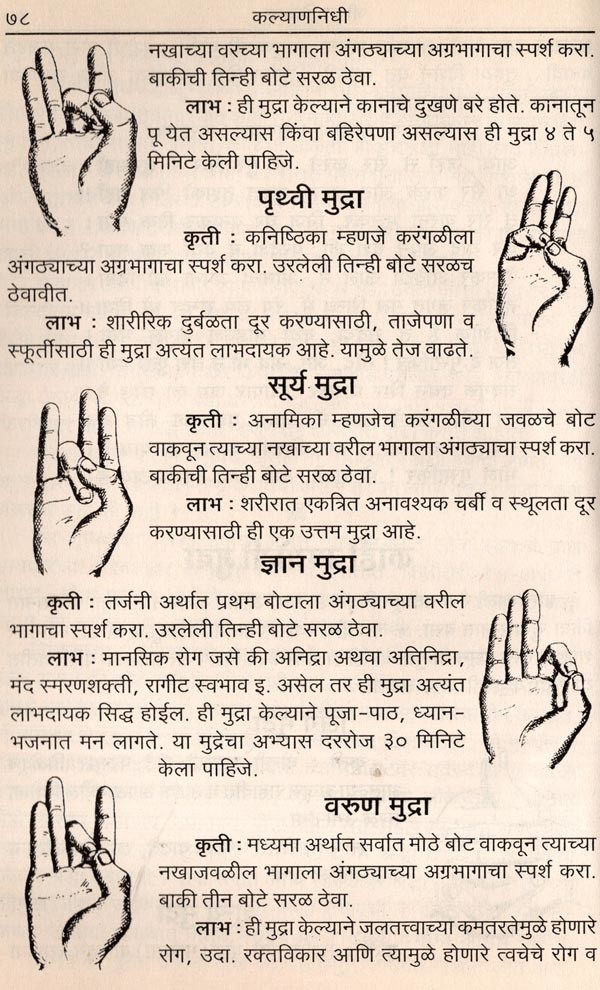 ७८
कल्याणनिधी
नखाच्या वरच्या भागाला अंगठ्याच्या अग्रभागाचा स्पर्श करा.
बाकीची तिन्ही बोटे सरळ ठेवा.
लाभ : ही मुद्रा केल्याने कानाचे दुखणे बरे होते. कानातून
पू येत असल्यास किंवा बहिरेपणा असल्यास ही मुद्रा ४ ते ५
मिनिटे केली पाहिजे.
पृथ्वी मुद्रा
कृती : कनिष्ठिका म्हणजे करंगळीला
अंगठ्याच्या अग्रभागाचा स्पर्श करा. उरलेली तिन्ही बोटे सरळच
ठेवावीत.
लाभ : शारीरिक दुर्बळता दूर करण्यासाठी, ताजेपणा व
स्फूर्तीसाठी ही मुद्रा अत्यंत लाभदायक आहे. यामुळे तेज वाढते.
सूर्य मुद्रा
कृती : अनामिका म्हणजेच करंगळीच्या जवळचे बोट
वाकवून त्याच्या नखाच्या वरील भागाला अंगठ्याचा स्पर्श करा.
बाकीची तिन्ही बोटे सरळ ठेवा.
लाभ : शरीरात एकत्रित अनावश्यक चर्बी व स्थूलता दूर
करण्यासाठी ही एक उत्तम मुद्रा आहे.
ज्ञान मुद्रा
कृती : तर्जनी अर्थात प्रथम बोटाला अंगठ्याच्या वरील
भागाचा स्पर्श करा. उरलेली तिन्ही बोटे सरळ ठेवा.
लाभ : मानसिक रोग जसे की अनिद्रा अथवा अतिनिद्रा,
मंद स्मरणशक्ती, रागीट स्वभाव इ. असेल तर ही मुद्रा अत्यंत
लाभदायक सिद्ध होईल. ही मुद्रा केल्याने पूजा-पाठ, ध्यान-
भजनात मन लागते. या मुद्रेचा अभ्यास दररोज ३० मिनिटे
केला पाहिजे.
वरुण मुद्रा
कृती : मध्यमा अर्थात सर्वात मोठे बोट वाकवून त्याच्या
नखाजवळील भागाला अंगठ्याच्या अग्रभागाचा स्पर्श करा.
बाकी तीन बोटे सरळ ठेवा.
लाभ : ही मुद्रा केल्याने जलतत्त्वाच्या कमतरतेमुळे होणारे
रोग, उदा. रक्तविकार आणि त्यामुळे होणारे त्वचेचे रोग व